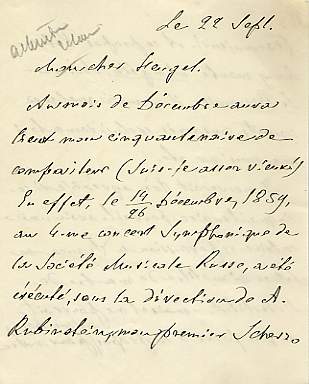 Le 22 Sept.
Mon cher Heugel.
Au mois de Décembre aura
lieu mon cinquantenaire de
compositeur (suis-je assez vieux!)
En effet, le 14/26 Décembre, 1859,
au 4-me concert Symphonique de
la Société Musicale Russe, a été
éxécuté, sous la direction de A.
Rubinstein, mon premier Scherzo